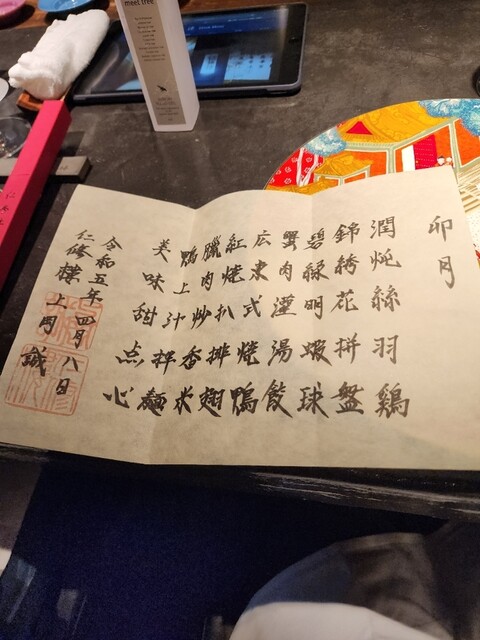 卯月
潤炖絲羽鶏
錦綉花拼盤
碧緑明蝦球
蟹肉灌湯餃
広東式焼鴨
紅焼扒排翅
臘肉炒香米
鴨上汁拌麺
美味甜点心
令和五年四月八日
仁修樓 上岡誠
meet tree